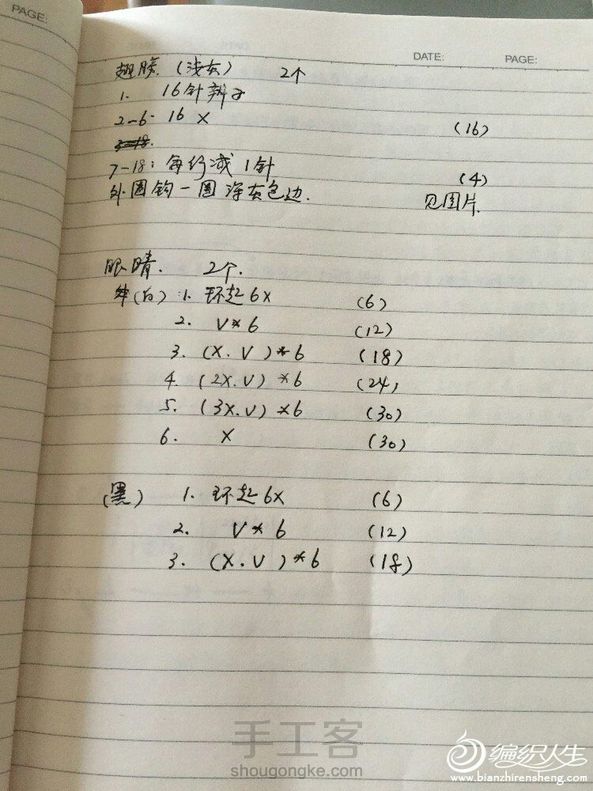 PAGE:
DATE: PAGE:
翅膀.(浅灰) 2个
1. 16针辫子
2-6. 16 X (16)
3-18.
7-18: 每行减1针 (4)
外圈钩一圈深灰包边. 见图片.
眼睛. 2个.
(白) 1. 环起6X (6)
2. V*6 (12)
3. (X.V)*6 (18)
4. (2X.V)*6 (24)
5. (3X.V)*6 (30)
6. X (30)
(黑) 1. 环起6X (6)
2. V*6 (12)
3. (X.V)*6 (18)
手工客
shougongke.com
编织人生
www.bianzhirensheng.com